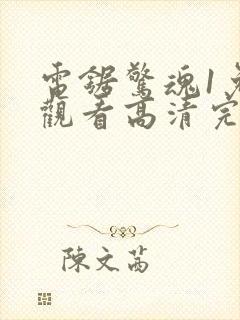 電鋸驚魂1免
觀看高清完
陳文茜